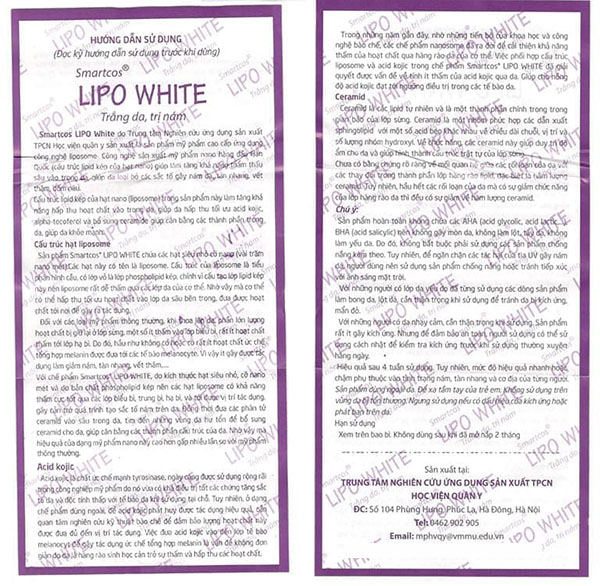 HƯỚNG DẪN SỬ DỤNG
(Đọc kỹ hướng dẫn sử dụng trước khi dùng)
Smartcos®
LIPO WHITE
Trắng da, trị nám
Smartcos LIPO White do Trung tâm Nghiên cứu ứng dụng sản xuất
TPCN Học viện quân y sản xuất là sản phẩm mỹ phẩm cao cấp ứng dụng
công nghệ liposome. Công nghệ sản xuất mỹ phẩm nano hàng đầu Hàn
Quốc (cấu trúc lipid kép của hạt nano) giúp làm tăng khả năng thẩm thấu
sâu vào trong da, giúp da loại bỏ các sắc tố gây nám da, tàn nhang, vết
thâm, đồi mồi.
Cấu trúc lipid kép của hạt nano (liposome) trong sản phẩm này làm tăng khả
năng hấp thu hoạt chất vào trong da, giúp da hấp thu tối ưu acid kojic,
alpha-tocopherol và bổ sung ceramide giúp cân bằng các thành phần trong
da, giúp da khỏe mạnh.
Cấu trúc hạt liposome
Sản phẩm Smartcos® LIPO WHITE chứa các hạt siêu nhỏ cỡ nano (vài trăm
nano met). Các hạt này có tên là liposome. Cấu trúc của liposome là tiểu
phân hình cầu, có lớp vỏ là lớp phospholipid kép, chính vì cấu tạo lớp lipid kép
này nên liposome rất dễ thấm qua các lớp da của cơ thể. Nhờ vậy mà cơ thể
có thể hấp thu tối ưu hoạt chất vào lớp da sâu bên trong, đưa được hoạt
chất tới nơi để gây ra tác dụng.
Đối với các loại mỹ phẩm thông thường, khi thoa lên da, phần lớn lượng
hoạt chất bị giữ lại ở lớp sừng, một số ít thấm vào lớp biểu bì, rất ít hoạt chất
thấm tới lớp hạ bì. Do đó, hầu như không có hoặc có rất ít hoạt chất ức chế
tổng hợp melanin được đưa tới các tế bào melanocyte. Vì vậy ít gây được tác
dụng làm giảm nám, tàn nhang, vết thâm,....
Với chế phẩm Smartcos® LIPO WHITE, do kích thước hạt siêu nhỏ, cỡ nano
mét và do bản chất phospholipid kép nên các hạt liposome có khả năng
thấm cực tốt qua các lớp biểu bì, trung bì, hạ bì, và tới được vị trí tác dụng,
gây cản trở quá trình tạo sắc tố nám trên da đồng thời đưa các phân tử
ceramid vào sâu trong da, tìm đến đúng vùng da hư tổn để bổ sung
ceramid cho da, giúp cân bằng các thành phần cấu trúc của da. Nhờ vậy mà
hiệu quả của dạng mỹ phẩm nano này cao hơn gấp nhiều lần so với mỹ phẩm
thông thường.
Acid kojic
Acid kojic là chất ức chế mạnh tyrosinase, ngày càng được sử dụng rộng rãi
trong công nghiệp mỹ phẩm do nó vừa có khả điều trị tất các chứng tăng sắc
tố da và độc tính thấp với tế bào da khi dùng tại chỗ. Tuy nhiên, ở dạng
chế phẩm dùng ngoài, để acid kojic phát huy được tác dụng hiệu quả, cần
quan tâm nghiên cứu kỹ thuật bào chế để đảm bảo lượng hoạt chất này
được đưa đủ đến vị trí tác dụng. Việc đưa acid kojic vào đến lớp tế bào
melanocyte để gây tác dụng ức chế tổng hợp melanin là vấn đề không đơn
giản do da là hàng rào sinh học cản trở sự thấm và hấp thu các hoạt chất.
Trong những năm gần đây, nhờ những tiến bộ của khoa học và công
nghệ bào chế, các chế phẩm nanosome đã ra đời để cải thiện khả năng
thấm của hoạt chất qua hàng rào da của cơ thể. Việc phối hợp cấu trúc
liposome và acid kojic trong chế phẩm Smartcos® LIPO WHITE đã giải
quyết được vấn đề vận hành ít thấm của acid kojic qua da. Giúp cho nồng
độ acid kojic đạt tới ngưỡng điều trị trong các tế bào da.
Ceramid
Ceramid là các lipid tự nhiên và là một thành phần chính trong trong
gian bào của lớp sừng. Ceramid là một nhóm phức hợp các dẫn xuất
sphingolipid với một số acid béo khác nhau về chiều dài chuỗi, vị trí và
số lượng nhóm hydroxyl. Về tổ chức học, các ceramid này giúp duy trì độ
ẩm cho da và giúp hình thành cấu trúc trật tự của lớp sừng.
Chưa có bằng chứng rõ ràng về mối quan hệ giữa các rối loạn của da với
các thay đổi trong thành phần lớp hàng rào lipid, đặc biệt là hàm lượng
ceramid. Tuy nhiên, hầu hết các rối loạn của da mà có sự giảm chức năng
của lớp hàng rào da thì đều có sự giảm về hàm lượng ceramid.
Chú ý:
Sản phẩm hoàn toàn không chứa các AHA (acid glycolic, acid lactic),
BHA (acid salicylic) nên không gây mòn da, không làm lột, tẩy da, không
làm yếu da. Do đó, không bắt buộc phải sử dụng các sản phẩm chống
nắng kèm theo. Tuy nhiên, để ngăn chặn các tác hại của tia UV gây nám
da, người dùng nên sử dụng sản phẩm chống nắng hoặc tránh tiếp xúc
với ánh sáng mặt trời.
Với những người có lớp da yếu do đã từng sử dụng các dòng sản phẩm
làm bong da, lột da, cần thận trọng khi sử dụng để tránh da bị kích ứng,
mẩn đỏ.
Với những người có da nhạy cảm, cẩn thận trọng khi sử dụng. Sản phẩm
rất ít gây kích ứng. Nhưng để đảm bảo an toàn người sử dụng có thể sử
dụng cách nhật để kiểm tra kích ứng trước khi sử dụng thường xuyên
hằng ngày.
Hiệu quả sau 4 tuần sử dụng. Tùy nhiên, mức độ hiệu quả nhanh hoặc
chậm phụ thuộc vào tình trạng nám, tàn nhang và cơ địa của từng người.
Sản phẩm dùng ngoài da. Để xa tầm tay của trẻ em. Không sử dụng trên
vùng da bị tổn thương. Ngưng sử dụng nếu có dấu hiệu của kích ứng hoặc
phát ban trên da.
Hạn sử dụng
Xem trên bao bì. Không dùng sau khi đã mở nắp 2 tháng
Sản xuất tại:
TRUNG TÂM NGHIÊN CỨU ỨNG DỤNG SẢN XUẤT TPCN
HỌC VIỆN QUÂN Y
ĐC: Số 104 Phùng Hưng, Phúc La, Hà Đông, Hà Nội
Tel: 0462 902 905
Email: mphvqy@vmmu.edu.vn